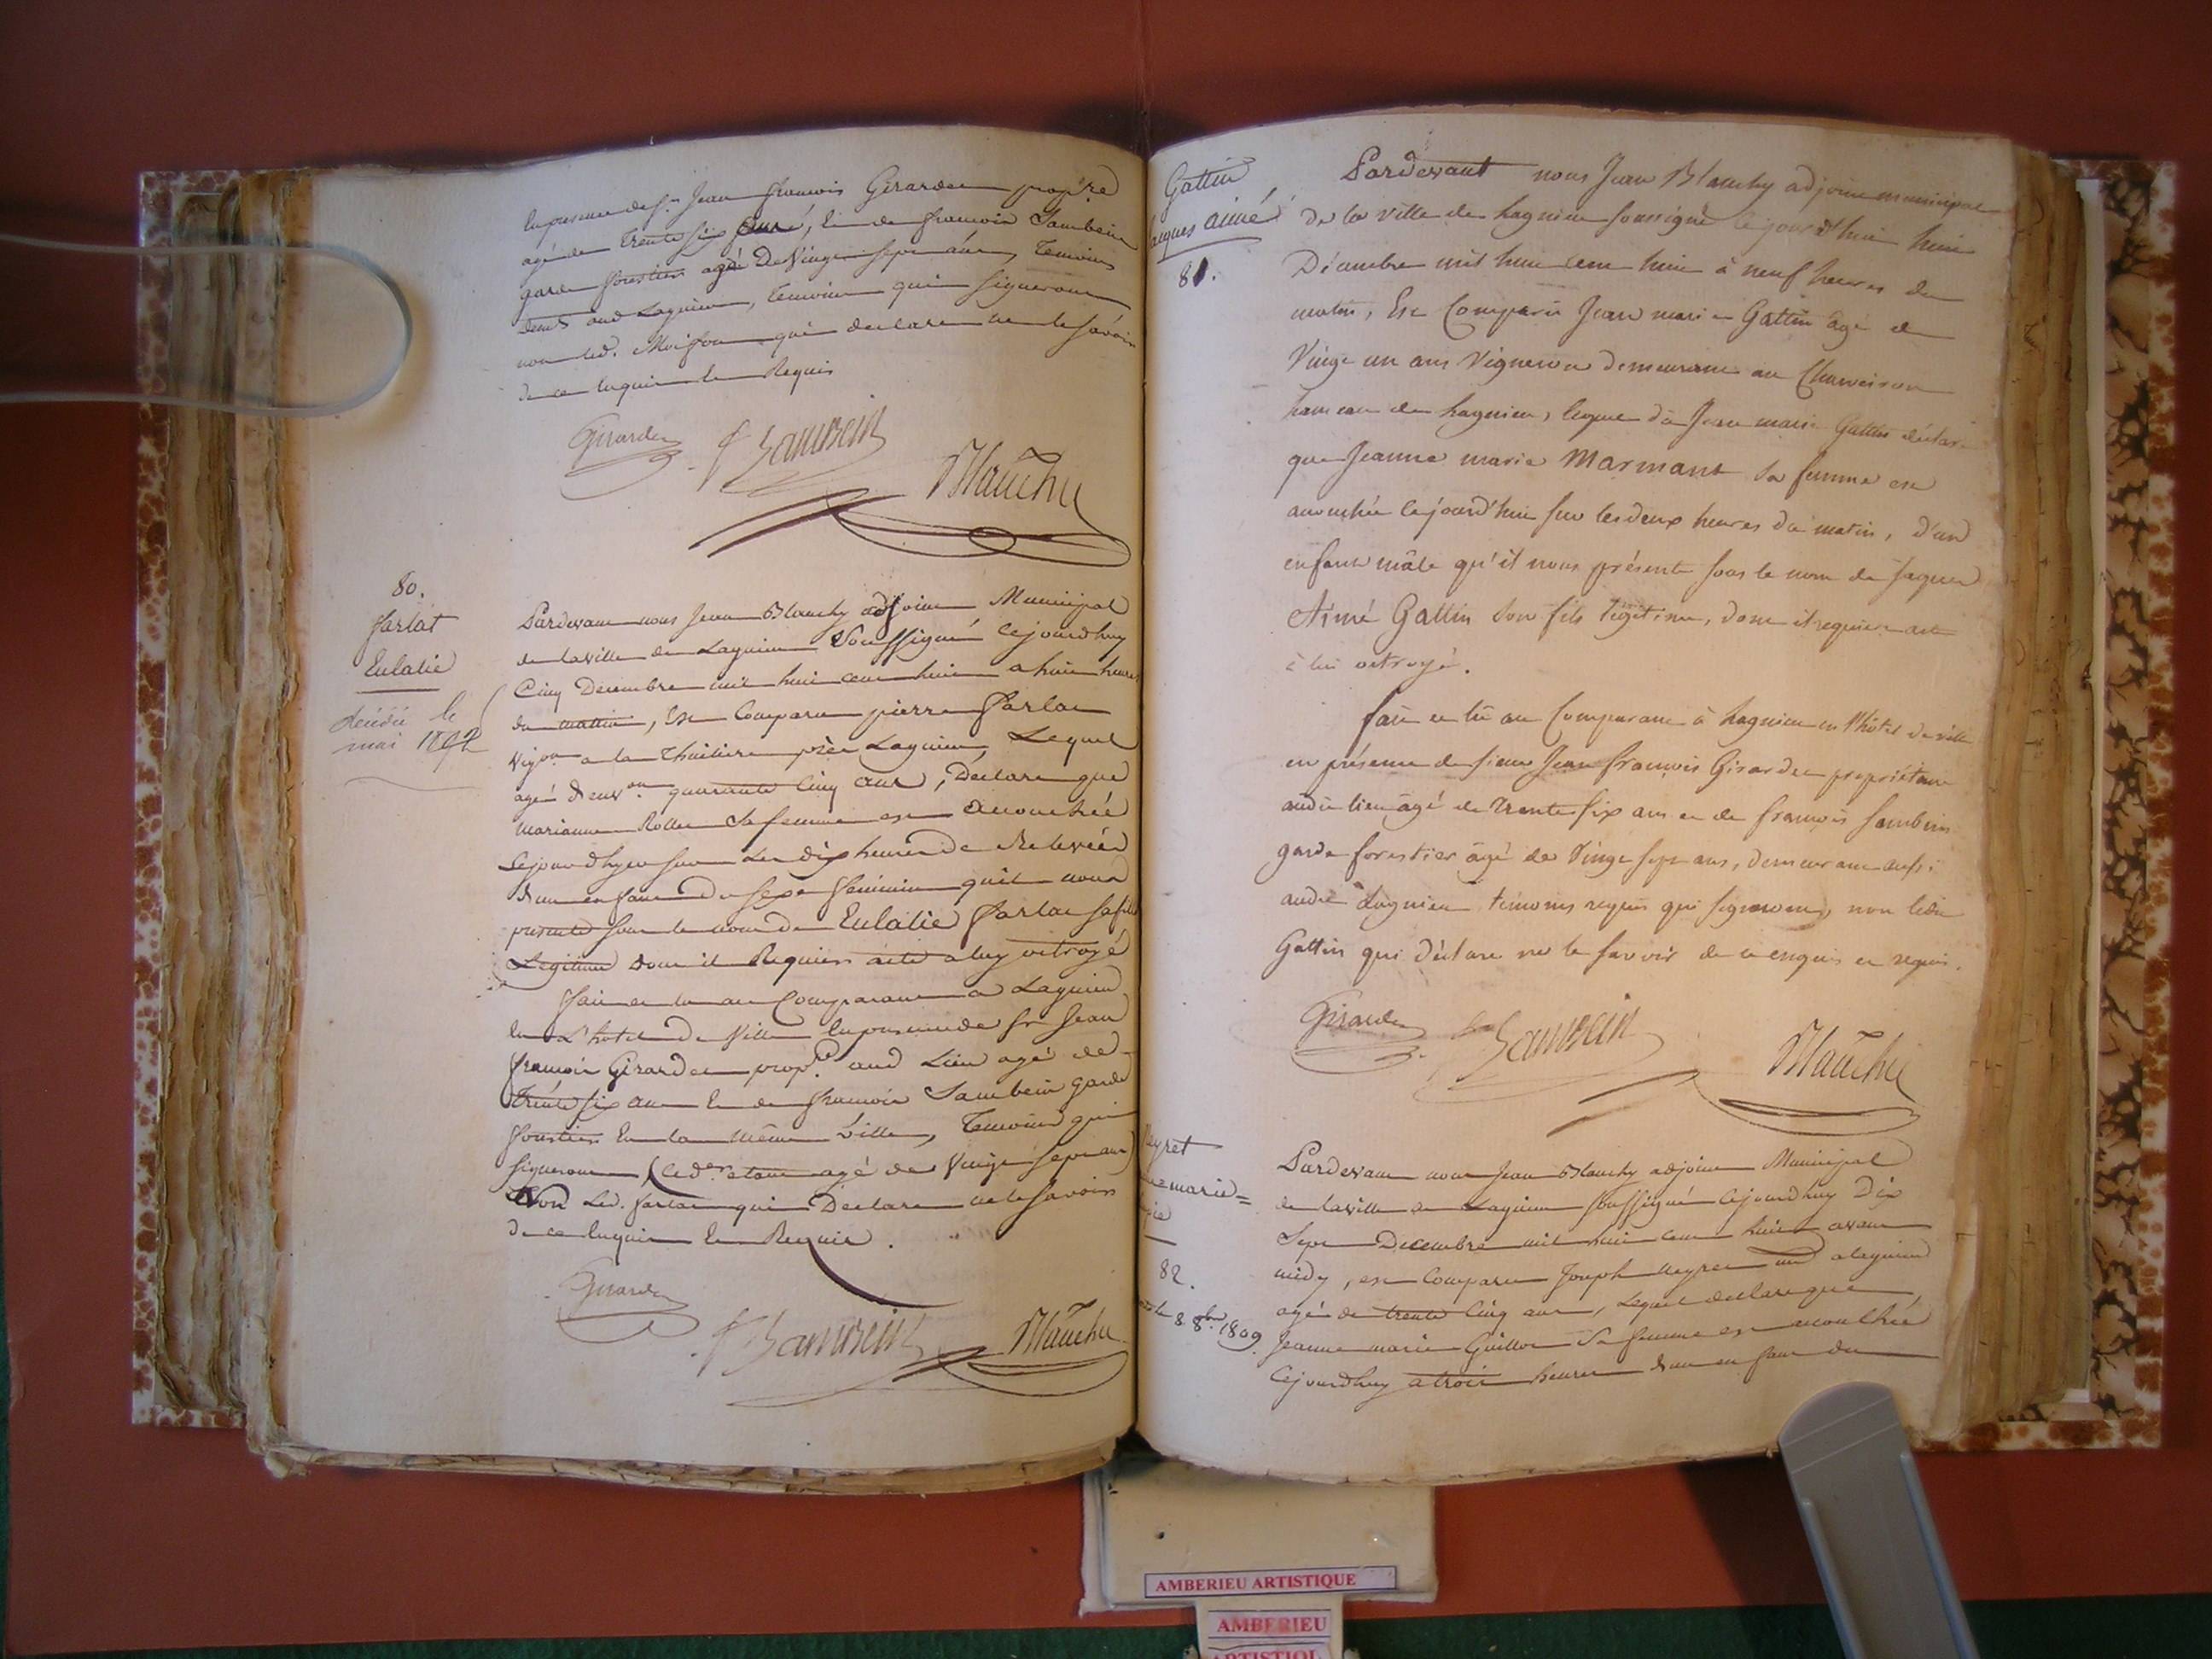 en presence de sr. Jean francois Girardet prop.re
agé de trente six ans, et de francois Sambein
garde forestier agé De Vingt sept ans, Temoins
demt aud Lagnieu, temoins qui signeront
non led. Moisson qui declare ne le savoir
de ce enquis et Requis
Girardet Sambein Blanchy
80.
farlat
Eulalie
décédée le
mai 1892
Pardevant nous Jean Blanchy adjoint Municipal
de la ville de Lagnieu Soussigné Cejourdhuy
Cinq Decembre mil huit cent huit a huit heures
du matin, Est Comparu pierre farlat
vigon a la Thuiliere près Lagnieu, Lequel
agé d'env.on quarante Cinq ans, Declare que
marianne Rollet Sa femme est accouchée
Cejourdhyer sur Les dix heures De Relevée
d'un enfant Du sexe feminin quil nous
presente sous le nom de Eulalie farlat sa fille
Legitime dont il Requiert acte a luy octroyé
fait et lu au Comparant a Lagnieu
en L'hotel De Ville en presence de sr Jean
francois Girardet prop.re aud Lieu agé de
trente six ans et de francois Sambein garde
forestier En la même ville, Temoins qui
signeront (led.er etant agé de Vingt sept ans)
Non Led. farlat qui Declare ne le savoir
de ce enquis et Requis.
Girardet
Sambein Blanchy
Gattin
Jaques aimé
81.
Pardevant nous Jean Blanchy adjoint municipal
De la ville de Lagnieu soussigné cejourd'hui huit
Décembre mil huit cent huit à neuf heures du
matin, Est Comparu Jean marie Gattin âgé de
Vingt un ans Vigneron demeurant au Charveiron
hameau de Lagnieu, lequel dit Jean marie Gattin déclare
que Jeanne marie Marmant sa femme est
accouchée cejourd'hui sur les deux heures du matin, d'un
enfant mâle qu'il nous présente sous le nom de Jaques
Aimé Gattin son fils légitime, dont il requiert acte
à lui octroyé.
fait et lu au Comparant à Lagnieu en l'hôtel de ville
en présence de sieur Jean françois Girardet propriétaire
audit lieu âgé de trente six ans et de françois Sambein
garde forestier âgé de Vingt sept ans, demeurant aussi
audit Lagnieu témoins requis qui signeront, non ledit
Gattin qui déclare ne le savoir de ce enquis et requis.
Girardet Sambein Blanchy
neyret
marie=
82.
le 8 8bre 1809.
Pardevant nous Jean Blanchy adjoint Municipal
de la ville de Lagnieu soussigné Cejourdhuy Dix
Sept Decembre mil huit cent huit avant
midy, est Comparu Joseph neyret md a Lagnieu
agé de trente Cinq ans, Lequel declare que
Jeanne marie Guillot Sa femme est accouchée
Cejourdhuy a trois heures d'un enfant du
AMBERIEU ARTISTIQUE
AMBERIEU
ARTISTIQU